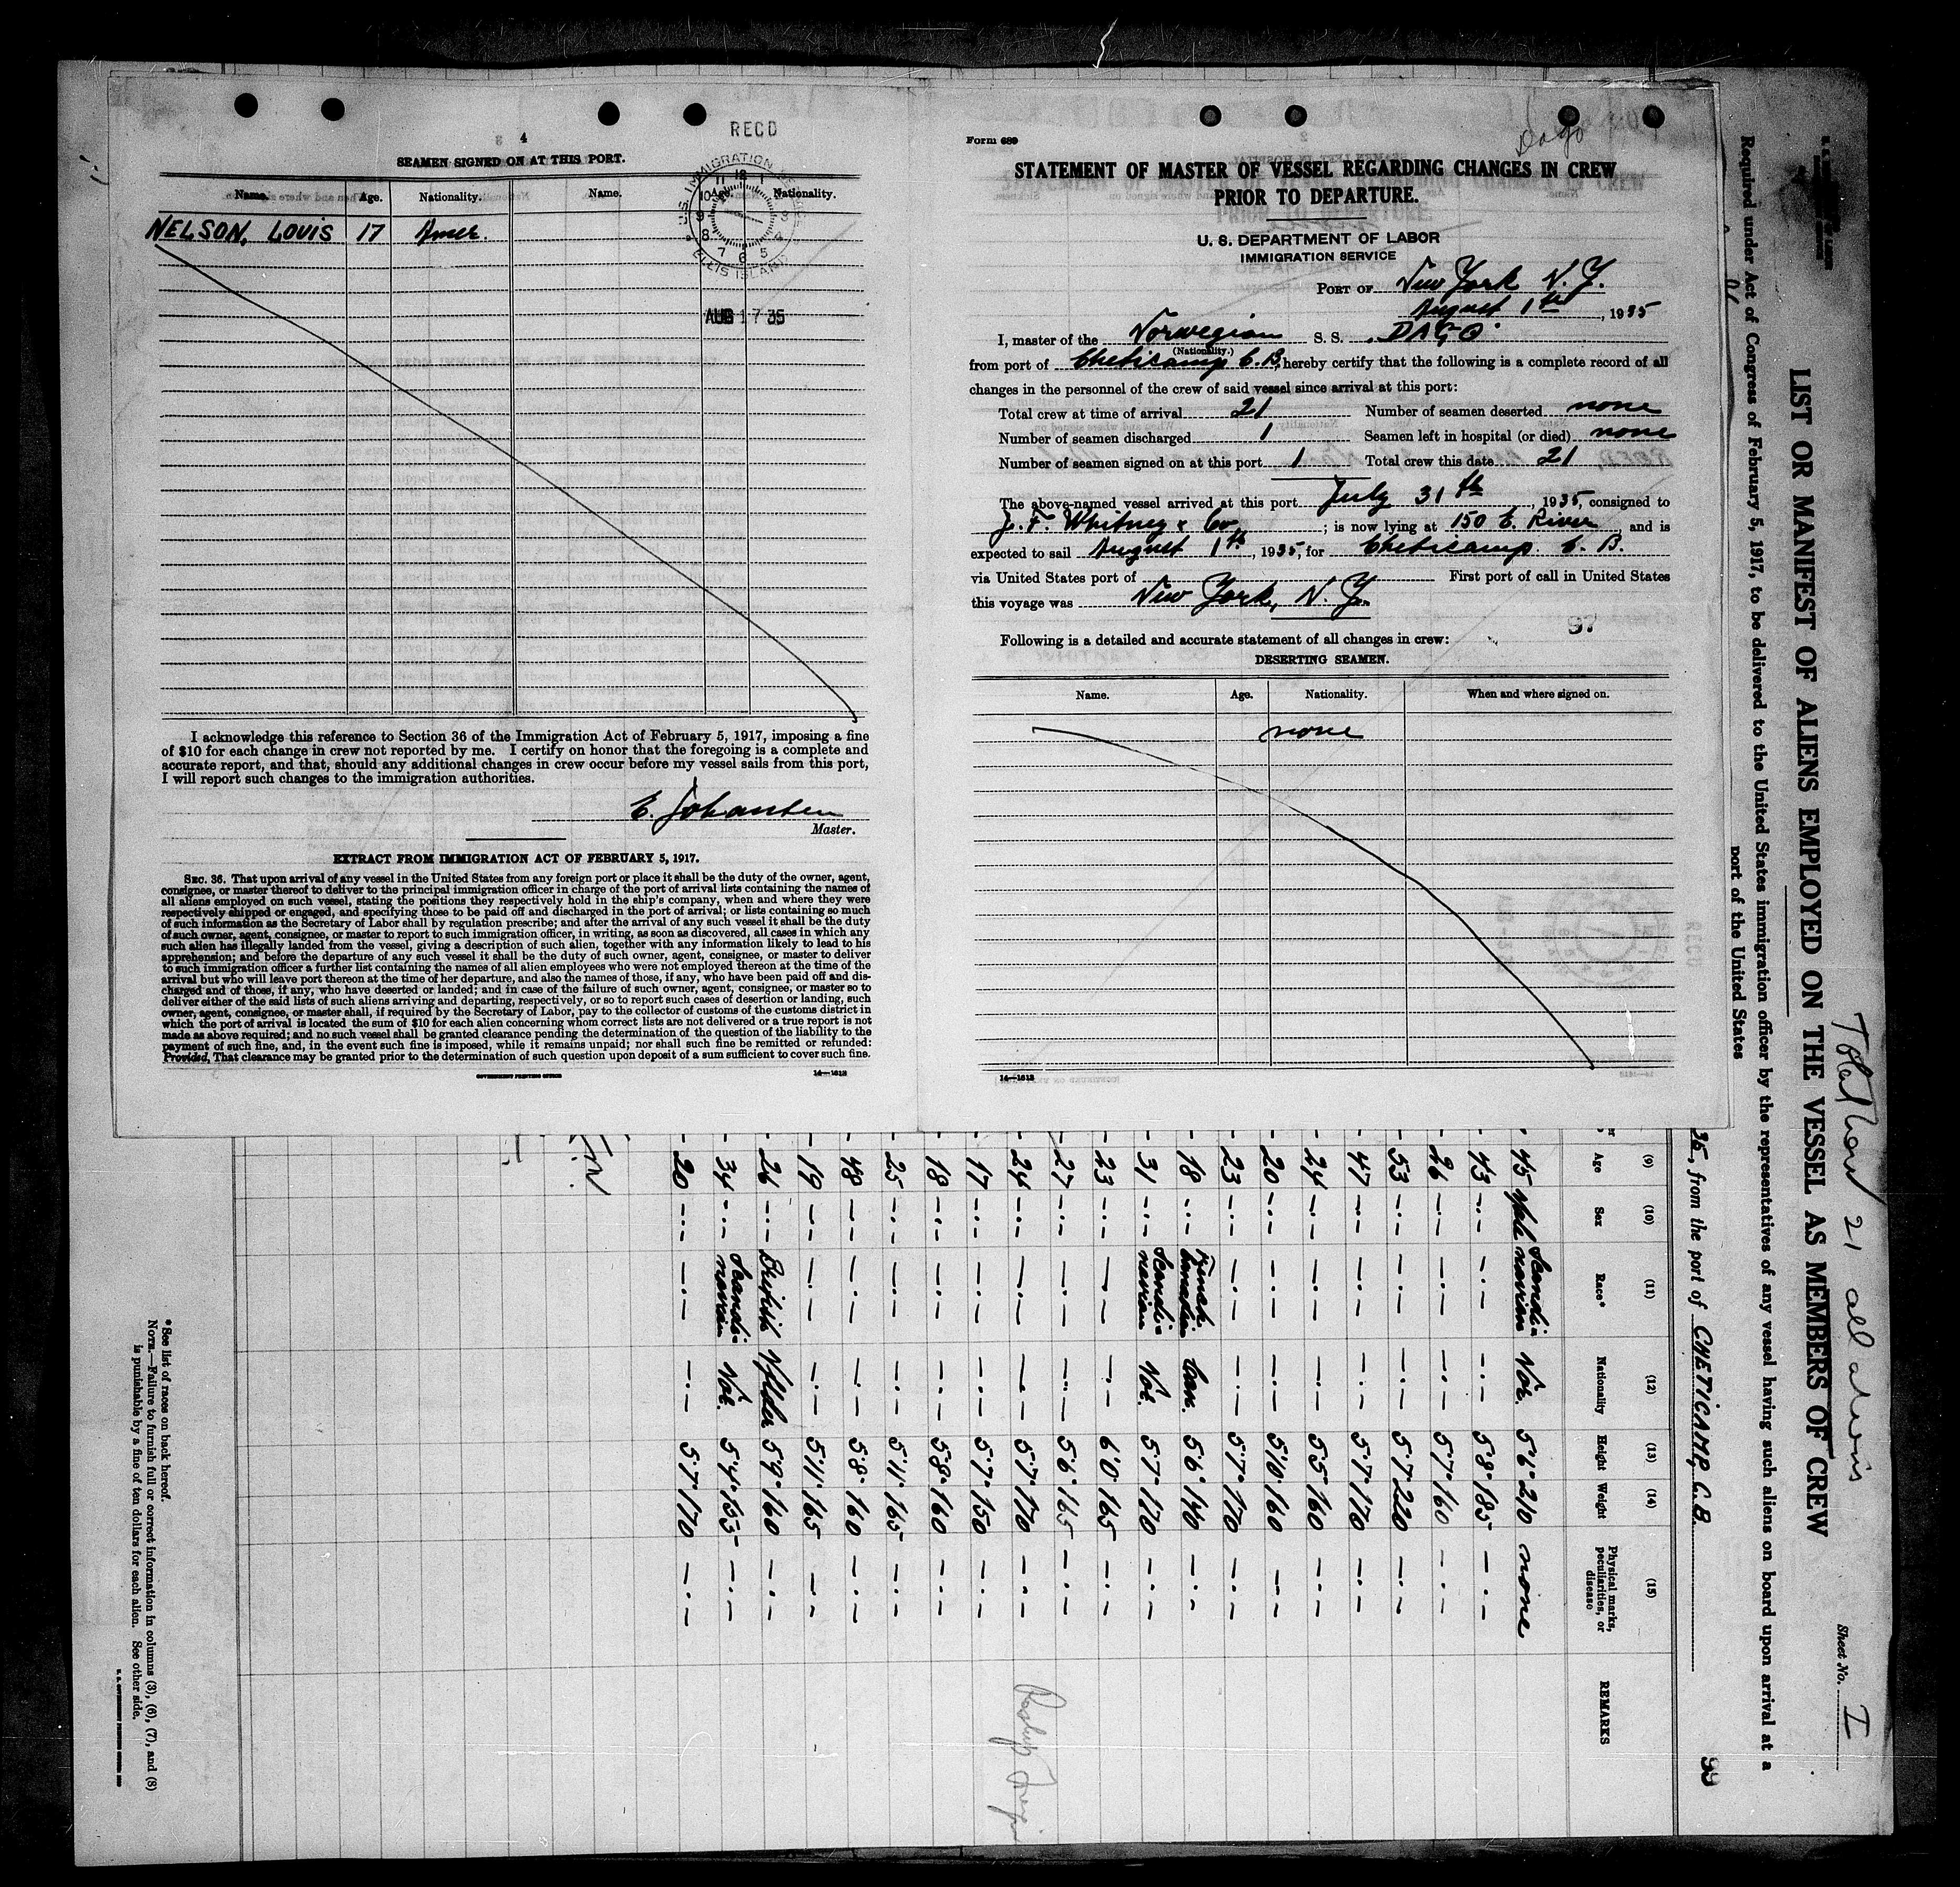 4
RECD
SEAMEN SIGNED ON AT THIS PORT.
Name. Age. Nationality. Name. Age. Nationality.
U. S. IMMIGRATION ELLIS ISLAND
NELSON, LOUIS 17 Amer.
AUG 17 35
I acknowledge this reference to Section 36 of the Immigration Act of February 5, 1917, imposing a fine
of $10 for each change in crew not reported by me. I certify on honor that the foregoing is a complete and
accurate report, and that, should any additional changes in crew occur before my vessel sails from this port,
I will report such changes to the immigration authorities.
E. Johansen
Master.
EXTRACT FROM IMMIGRATION ACT OF FEBRUARY 5, 1917.
SEC. 36. That upon arrival of any vessel in the United States from any foreign port or place it shall be the duty of the owner, agent,
consignee, or master thereof to deliver to the principal immigration officer in charge of the port of arrival lists containing the names of
all aliens employed on such vessel, stating the positions they respectively hold in the ship's company, when and where they were
respectively shipped or engaged, and specifying those to be paid off and discharged in the port of arrival; or lists containing so much
of such information as the Secretary of Labor shall by regulation prescribe; and after the arrival of any such vessel it shall be the duty
of such owner, agent, consignee, or master to report to such immigration officer, in writing, as soon as discovered, all cases in which any
such alien has illegally landed from the vessel, giving a description of such alien, together with any information likely to lead to his
apprehension; and before the departure of any such vessel it shall be the duty of such owner, agent, consignee, or master to deliver
to such immigration officer a further list containing the names of all alien employees who were not employed thereon at the time of the
arrival but who will leave port thereon at the time of her departure, and also the names of those, if any, who have been paid off and dis-
charged and of those, if any, who have deserted or landed; and in case of the failure of such owner, agent, consignee, or master so to
deliver either of the said lists of such aliens arriving and departing, respectively, or so to report such cases of desertion or landing, such
owner, agent, consignee, or master shall, if required by the Secretary of Labor, pay to the collector of customs of the customs district in
which the port of arrival is located the sum of $10 for each alien concerning whom correct lists are not delivered or a true report is not
made as above required; and no such vessel shall be granted clearance pending the determination of the question of the liability to the
payment of such fine, and, in the event such fine is imposed, while it remains unpaid; nor shall such fine be remitted or refunded:
Provided, That clearance may be granted prior to the determination of such question upon deposit of a sum sufficient to cover such fine.
GOVERNMENT PRINTING OFFICE 14—1613
Form 689
Dago
STATEMENT OF MASTER OF VESSEL REGARDING CHANGES IN CREW
PRIOR TO DEPARTURE.
U. S. DEPARTMENT OF LABOR
IMMIGRATION SERVICE
PORT OF New York N. Y.
August 1th, 1935
I, master of the Norwegian S. S. "DAGO"
(Nationality.)
from port of Cheticamp C.B., hereby certify that the following is a complete record of all
changes in the personnel of the crew of said vessel since arrival at this port:
Total crew at time of arrival 21 Number of seamen deserted none
Number of seamen discharged 1 Seamen left in hospital (or died) none
Number of seamen signed on at this port 1 Total crew this date 21
The above-named vessel arrived at this port July 31th, 1935, consigned to
J. F. Whitney & Co.; is now lying at 150 E. River, and is
expected to sail August 1th, 1935, for Cheticamp C. B.
via United States port of First port of call in United States
this voyage was New York, N. Y.
97
Following is a detailed and accurate statement of all changes in crew:
DESERTING SEAMEN.
Name. Age. Nationality. When and where signed on.
none
14—1613
Total crew 21 all aliens
Sheet No. I
LIST OR MANIFEST OF ALIENS EMPLOYED ON THE VESSEL AS MEMBERS OF CREW
Required under Act of Congress of February 5, 1917, to be delivered to the United States immigration officer by the representatives of any vessel having such aliens on board upon arrival at a
port of the United States
35, from the port of CHETICAMP, C.B.
99
(9) (10) (11) (12) (13) (14) (15)
Age Sex Race* Nationality Height Weight Physical marks, peculiarities, or disease REMARKS
45 Male Scandinavian Nor. 5'6" 210 none
43 -"- -"- -"- 5'8" 185 -"-
26 -"- -"- -"- 5'7" 160 -"-
53 -"- -"- -"- 5'7" 220 -"-
47 -"- -"- -"- 5'7" 170 -"-
24 -"- -"- -"- 5'5" 160 -"-
20 -"- -"- -"- 5'10" 160 -"-
23 -"- -"- -"- 5'7" 170 -"-
18 -"- French Canadian Can. 5'6" 140 -"-
31 -"- Scandinavian Nor. 5'7" 170 -"-
23 -"- -"- -"- 6'0" 165 -"-
27 -"- -"- -"- 5'6" 165 -"-
24 -"- -"- -"- 5'7" 170 -"-
17 -"- -"- -"- 5'7" 150 -"-
18 -"- -"- -"- 5'8" 160 -"-
25 -"- -"- -"- 5'11" 165 -"-
48 -"- -"- -"- 5'8" 160 -"-
19 -"- -"- -"- 5'11" 165 -"-
26 -"- British Nflder 5'9" 160 -"-
34 -"- Scandinavian Nor. 5'4" 155 -"-
20 -"- -"- -"- 5'7" 170 -"-
*See list of races on back hereof.
NOTE.—Failure to furnish full or correct information in columns (3), (6), (7), and (8)
is punishable by a fine of ten dollars for each alien. See other side.